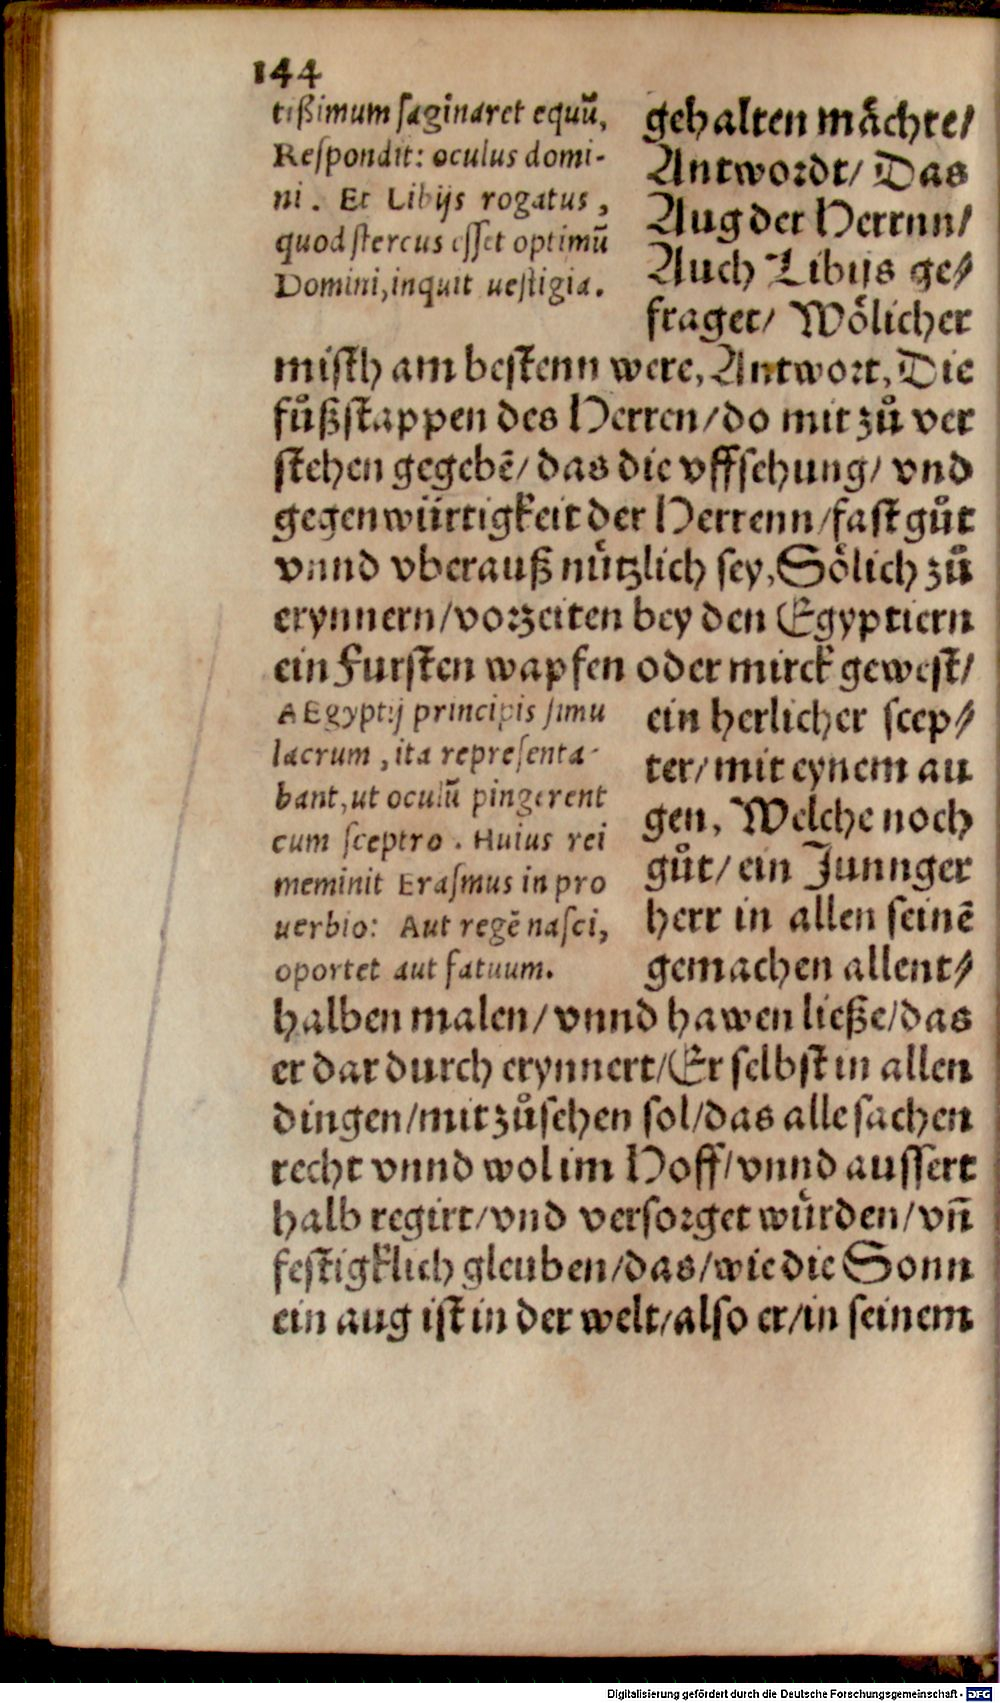 144
tißimum saginaret equũ,
Respondit: oculus domi-
ni. Et Libijs rogatus,
quod stercus esset optimũ
Domini, inquit uestigia.
gehalten mächte/
Antwordt/ Das
Aug der Herrnn/
Auch Libijs ge⸗
fraget/ Wölicher
misth am bestenn were, Antwort, Die
fůßstappen des Herren/ do mit zů ver
stehen gegebẽ/ das die vffsehung/ vnd
gegenwürtigkeit der Herrenn/ fast gůt
vnnd vberauß nützlich sey, Sölich zů
erynnern/ vorzeiten bey den Egyptiern
ein Fursten wapfen oder mirck gewest/
AEgyptij principis simu
lacrum, ita representa-
bant, ut oculũ pingerent
cum sceptro. Huius rei
meminit Erasmus in pro
uerbio: Aut regẽ nasci,
oportet aut fatuum.
ein herlicher scep⸗
ter/ mit eynem au
gen, Welche noch
gůt/ ein Junnger
herr in allen seinẽ
gemachen allent⸗
halben malen/ vnnd hawen ließe/ das
er dar durch erynnert/ Er selbst in allen
dingen/ mit zůsehen sol/ das alle sachen
recht vnnd wol im Hoff/ vnnd aussert
halb regirt/ vnd versorget würden/ vñ
festigklich gleuben/ das/ wie die Sonn
ein aug ist in der welt/ also er/ in seinem
Digitalisierung gefördert durch die Deutsche Forschungsgemeinschaft - DFG